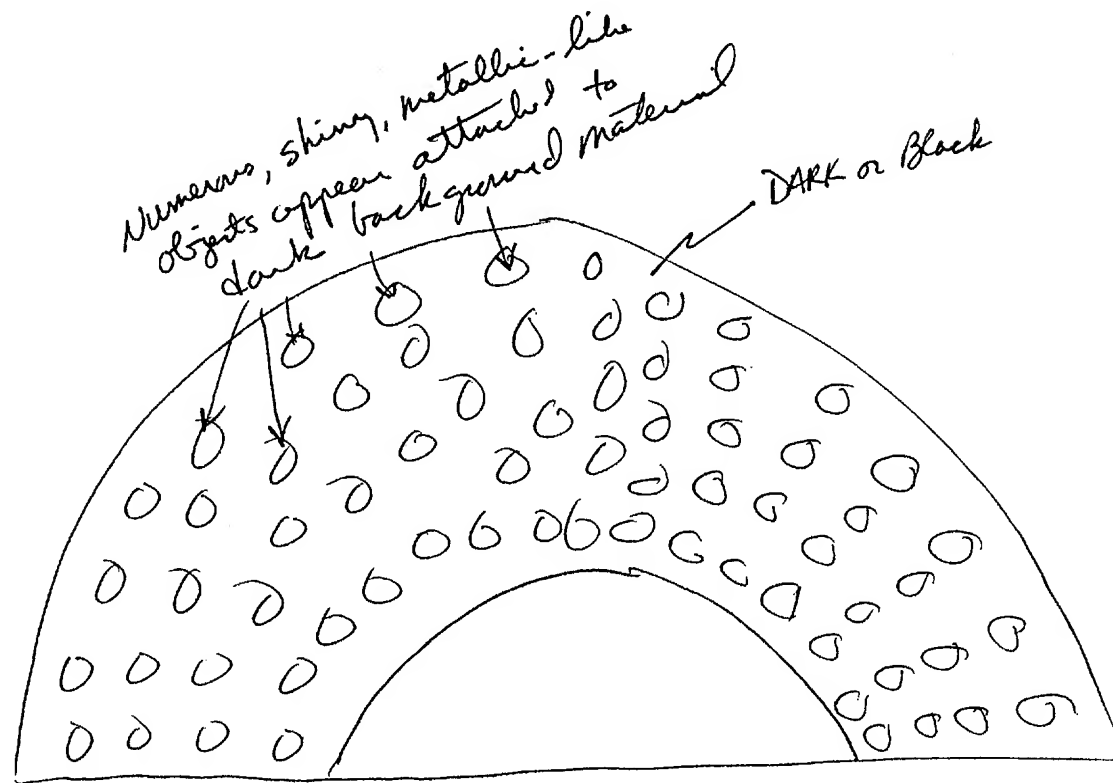 Numerous, shiny, metallic-like
objects appear attached to
dark background material
DARK or Black